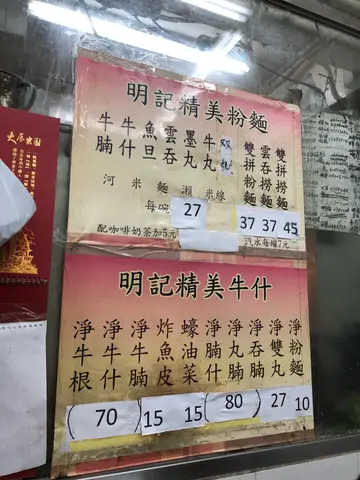 大展宏圖
明記精美粉麵
牛腩
牛什
魚旦
雲吞
墨丸
牛丸
雙拼粉麵
雲吞撈麵
雙拼撈麵
河 米 麵 瀨 米線
每碗 27
37 37 45
配咖啡奶茶加5元
汽水每罐7元
明記精美牛什
淨牛根
淨牛什
淨牛腩
炸魚皮
蠔油菜
淨腩什
淨丸腩
淨吞腩
淨雙丸
淨粉麵
(70) 15 15 (80) 27 10